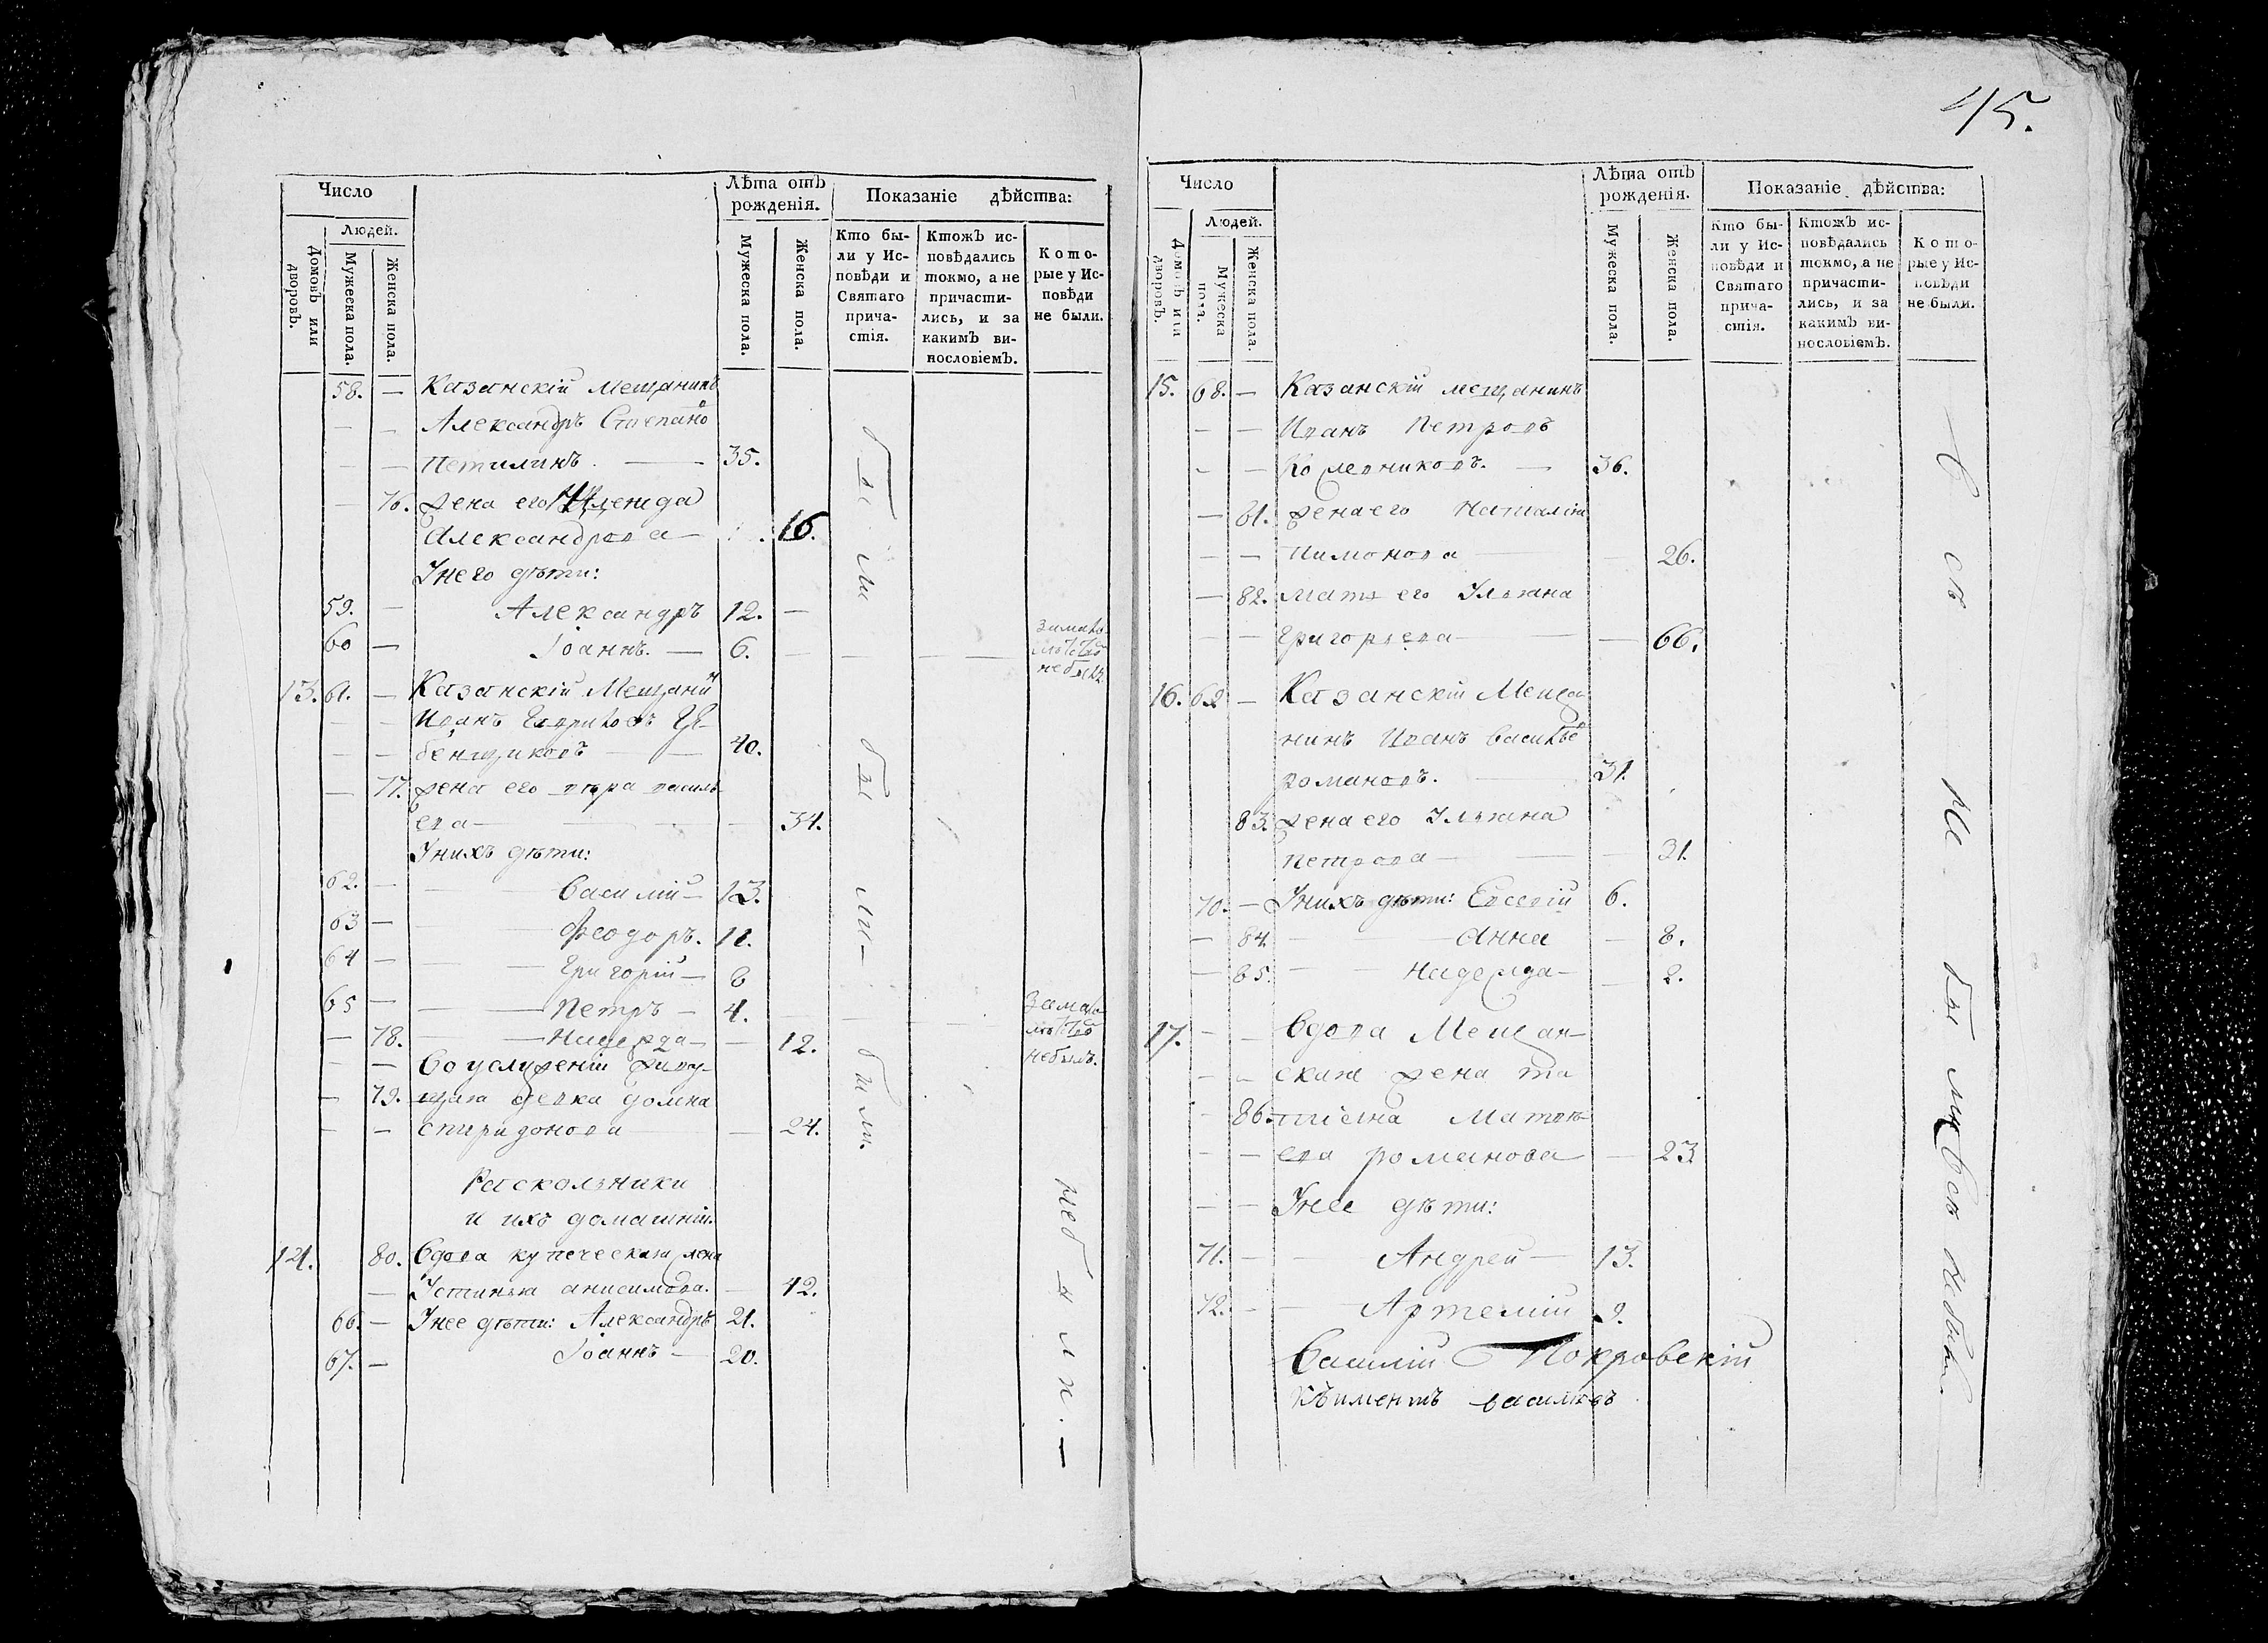 45.
Число
Лѣта отъ рожденія.
Показаніе дѣйства:
Людей.
Домовъ или дворовъ.
Мужеска пола.
Женска пола.
Мужеска пола.
Женска пола.
Кто были у Исповѣди и Святаго причастія.
Ктожъ исповѣдались токмо, а не причастились, и за какимъ винословіемъ.
Которые у Исповѣди не были.
58. — Казанскій Мещанинъ
— — Александръ Степано
— — Петилинъ. — 35.
— 76. жена его
Александрова — 16.
Унего дѣти:
59. — Александръ 12. —
60 — Іоаннъ. — 6. — — — —
не былъ
13. 61. — Казанскій Мещани
— — Иванъ
— — бенщиковъ — 40.
— 77. жена его вѣра василь
ева — — 34.
Унихъ дѣти:
62. — Василій — 13.
63 — Феодоръ. 11.
64 — Григорій — 8
65 — Петръ — 4.
за мало
лѣтство
небылъ.
— 78. — Надежда — 12.
— — Во услуженіи живу-
— 79. щая девка домна
— — спиридонова — 24.
были
были
были.
Раскольники
и ихъ домашніи.
14. 80. Вдова купеческая жена
— Устинья анисимова. — 42.
66. — Унее дѣти: Александръ 21.
67. — Іоаннъ — 20.
небыли. —
Число
Лѣта отъ рожденія.
Показаніе дѣйства:
Людей.
Домовъ или дворовъ.
Мужеска пола.
Женска пола.
Мужеска пола.
Женска пола.
Кто были у Исповѣди и Святаго причастія.
Ктожъ исповѣдались токмо, а не причастились, и за какимъ винословіемъ.
Которые у Исповѣди не были.
15. 68. — Казанскій мещанинъ
— — Иванъ Петровъ
— — 36.
— 81. жена его Наталія
— — Пимонова — 26.
— 82. мать его Ульяна
— — Григорьева — 66.
16. 69 — Казанскій Меща
нинъ Иванъ Василье
романовъ. — 31.
83. жена его Ульяна
Петрова — 31.
70. — Унихъ дѣти: Евсевій 6.
— 84. — Анна — 8.
— 85. — Надежда — 2.
17. — — Вдова Мещан-
— — ская жена та
— 86. тіяна Матвѣ-
— — ева романова — 23
— — Унее дѣти:
71. — — Андрей — 13.
72. — — Артемій 9.
Всѣ не были
Василій Покровскій
Климентъ васильевъ